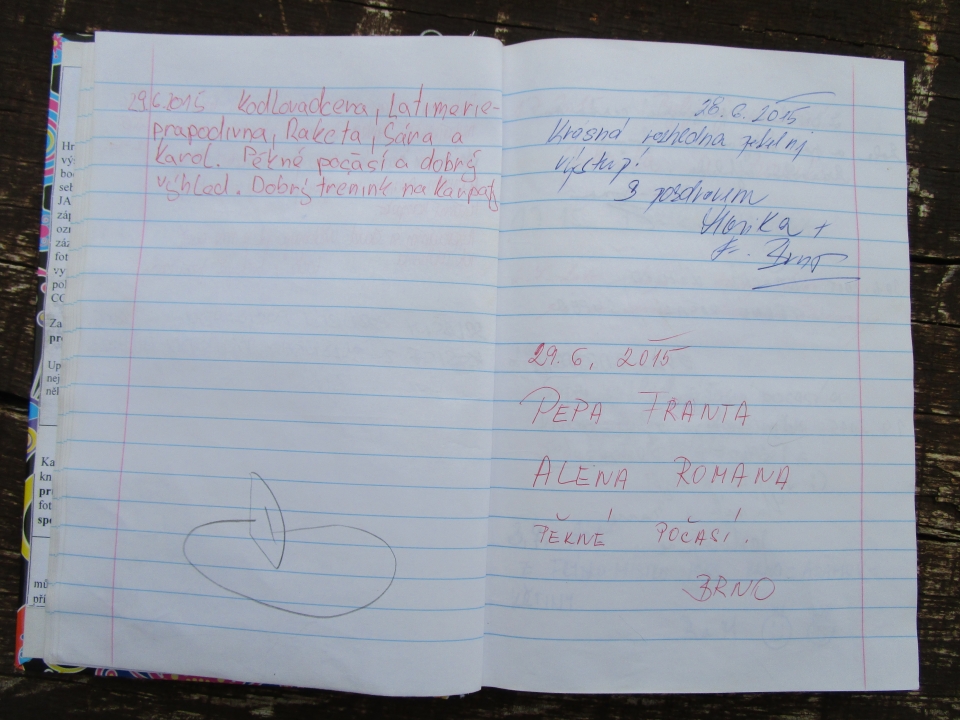 29.6.2015 Kodlovadcena, Latimerie-
prapodivna, Raketa, Sára a
Karol. Pěkné počasí a dobrý
výhled. Dobrý trénink na Karpaty
28.6.2015
Krásná rozhledna
výstup!
S pozdravem
29.6, 2015
PEPA FRANTA
ALENA ROMANA
PĚKNÉ POČASÍ.
BRNO
Hr
vý
bo
seb
JA
záp
ozn
záz
fot
vy
pol
CC
Za
pro
Up
nej
něl
Ka
kn
pro
fot
spo
mů
při